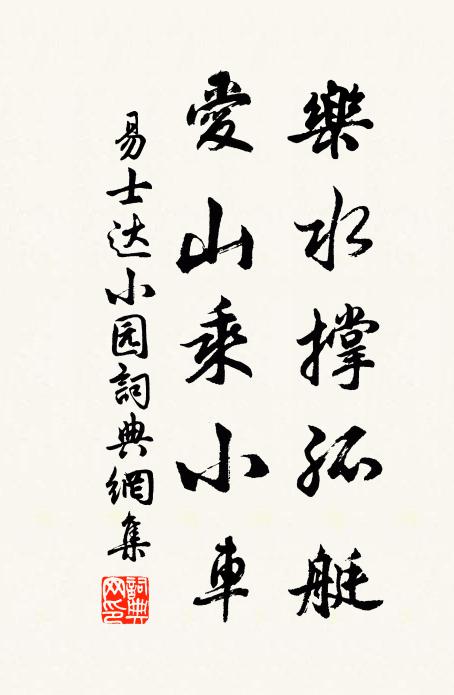 樂水撐孤艇
愛山乘小車
易士达小园詞典網集
詞典网印